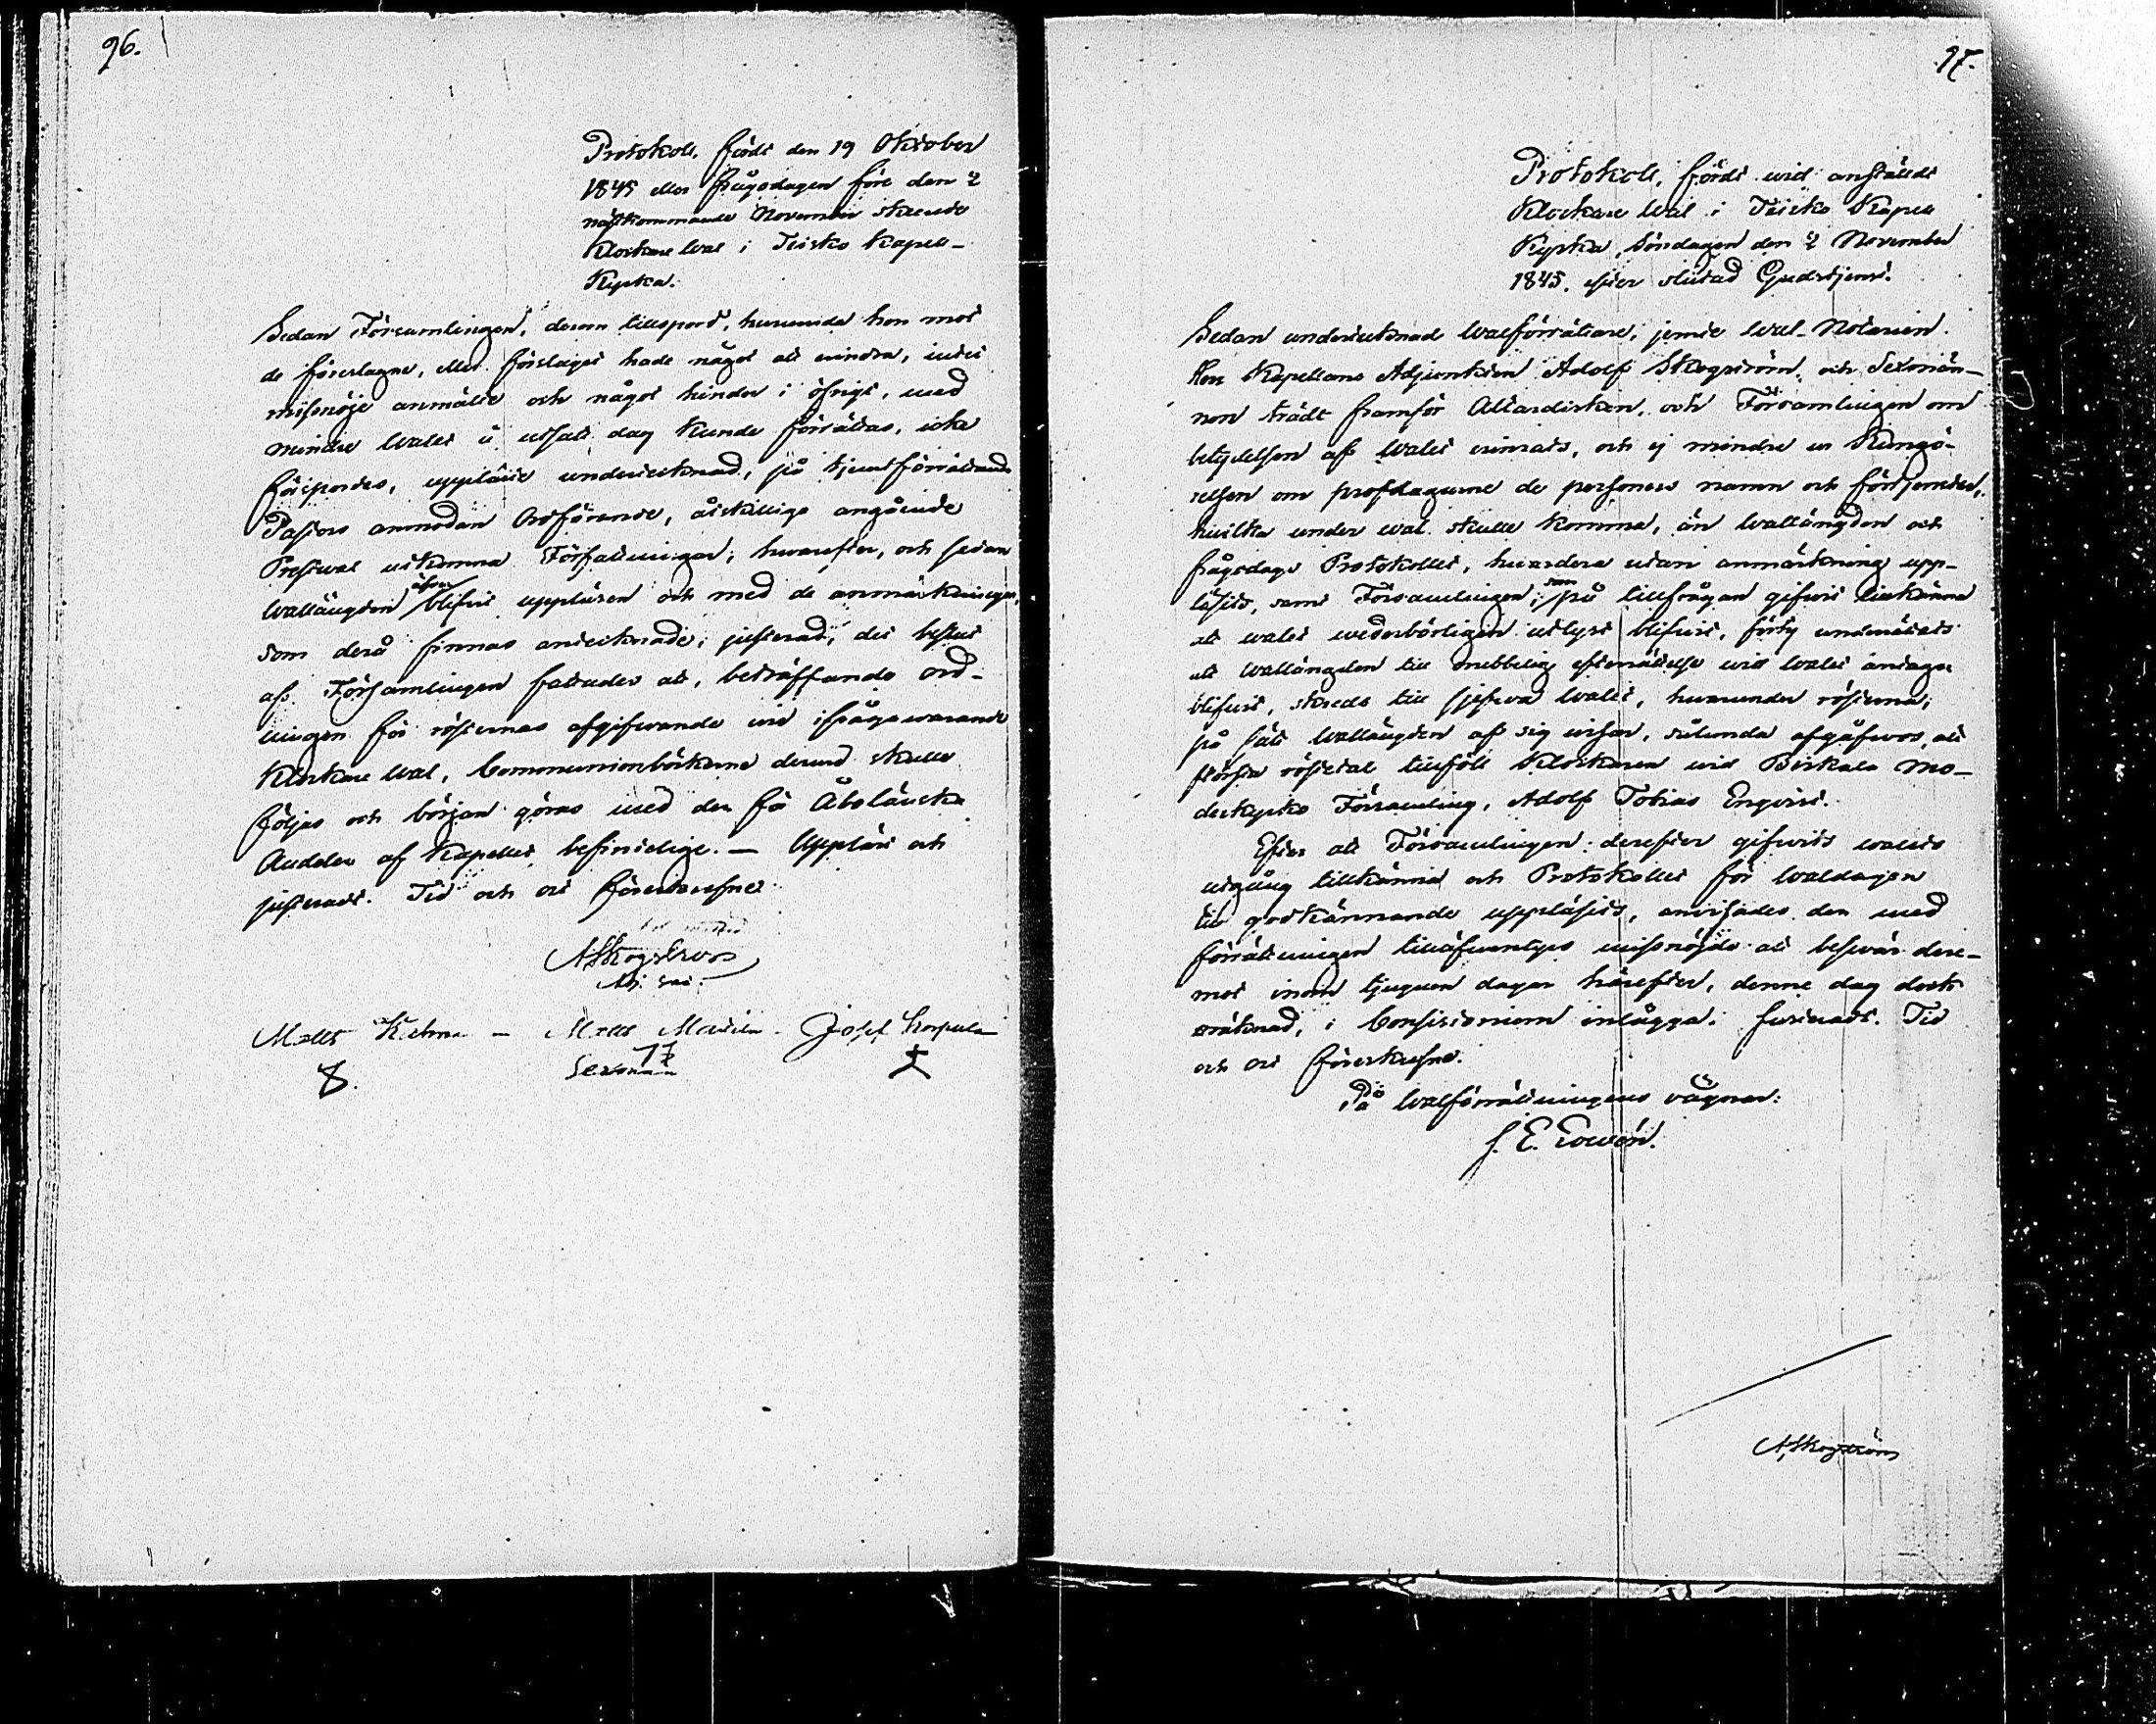 96.
Protokoll, fördt den 19 Oktober
1845 eller frågodagen före den 2
nästkommande November skeende
Klockare Wal i Teisko Kapell-
Kyrka.
Sedan Församlingen, derom tillspord, huruvida hon mot
de föreslagne, eller förslaget hade något att erindra, intet
missnöje anmälte och något hinder i öfrigt, med
mindre Walet å utsatt dag Kunde förrättas, icke
förspordes, uppläste undertecknad, på tjenstförrättande
Pastors anmodan Ordförande, åtskillige angående
Prestwal utkomna Författningar; hwarefter, och sedan
Wallängden äfven blifvit uppläsen och med de anmärkningar,
som derå finnas antecknade, justerad, det beslut
af Församlingen fattades att, beträffande ord-
ningen för rösternas afgifwande wid ifrågawarande
Klockare Wal, Communionböckerna derwid skulle
följas och början göras med den få Åboländska
Andelen af Kapellet befintelige. — Uppläst och
justeradt. Tid och ort förutskrefne
A Skogstrom
Adj. sac.
Matts Kulma — Matts Mattila — Josef Korpula
Sexman
97.
Protokoll, fördt wid anstäldt
Klockare Wal i Teisko Kapell
Kyrka, Söndagen den 2 November
1845, efter slutad Gudstjenst.
Sedan undertecknad Walförrättare, jemte Wal-Notarien
Herr Kapellans Adjunkten Adolf Skogström, och Sexmän-
nen trädt framför Altardisken, och Församlingen om
betydelsen af Walet erinrats, och ej mindre en Kungö-
relsen om profdagarne de personers namn och förtjenster,
hvilka under wal skulle komma, än Wallängden och
frågodags Protokollet, hwardera utan anmärkning upp-
lästs, samt Församlingen, som på tillfrågan gifvit tillkänna
att walet wederbörligen utlyst blifvit, förty underrättats
att Wallängden till orubbelig efterrättelse wid Walet antagen
blifvit, skreds till sjelfva Walet, hwarunder rösterna,
på sätt Wallängden af sig wisar, sålunda afgåfvos, att
största röstetal tillföll Klockaren wid Birkala Mo-
derkyrko Församling, Adolf Tobias Enqvist.
Efter att Församlingen derefter gifvits walets
utgång tillkänna och Protokollet för Waldagen
till godkännande uppläsits, anvisades den med
förrättningen tilläfventyrs missnöjde att beswär dere-
mot inom tjuguen dagar härefter, denne dag dock
oräknad, i Consistorium inlägga. Justeradt. Tid
och ort förutskrefne.
På Walförrättningens vägnar:
J. E. Rowén.
A Skogström